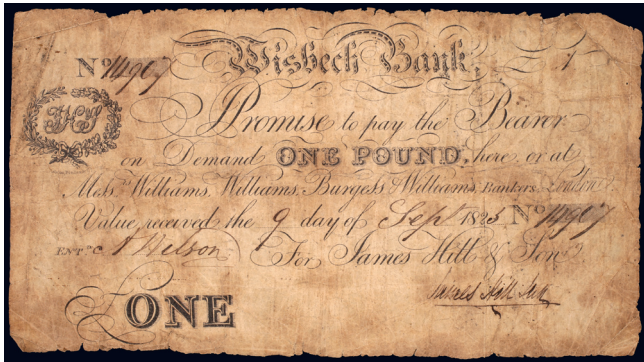 Wisbech Bank,
No 14907 £ 1
HS
I Promise to pay the Bearer
on Demand ONE POUND, here or at
Messrs Williams, Williams, Burgess & Williams, Bankers, London.
Value received the 9 day of Sept 1825 No 14907
ENTD. For James Hill & Son
James Hill
£ONE